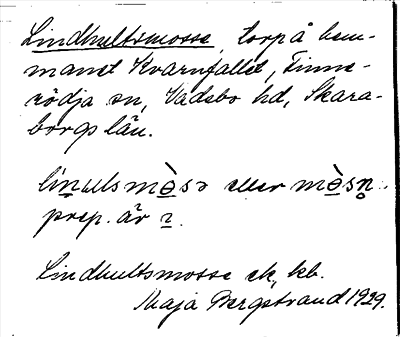 Lindhultsmosse, torp å hem-
manet Kvarnfallet, Finne-
rödja sn, Vadsbo hd, Skara-
borgs län.
eller
prep. är ı.
Lindhultsmosse ek. kb.
Maja Bergstrand 1929.